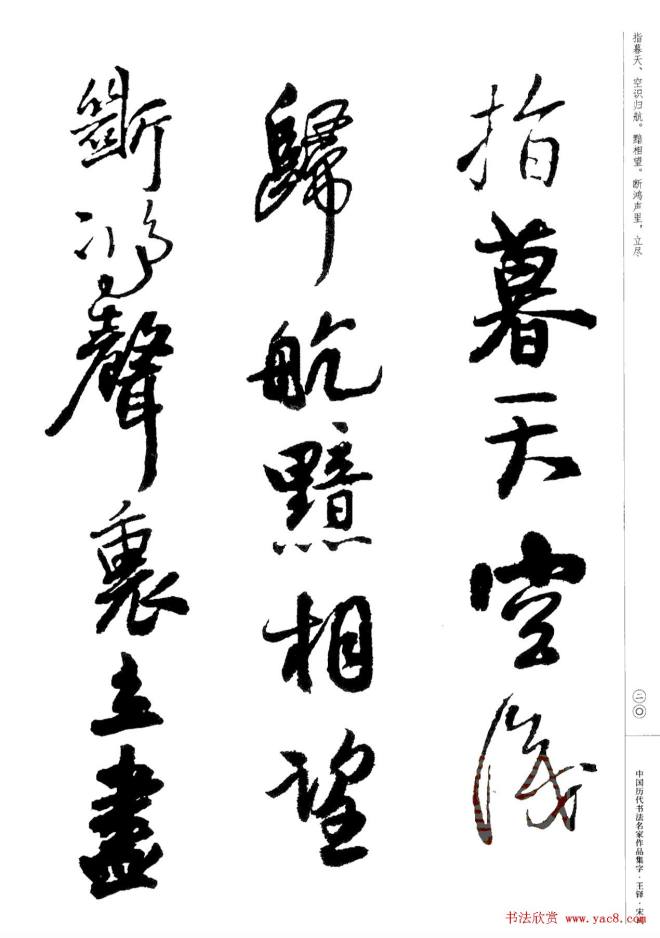 指暮天空识
歸航黯相望
斷鸿聲裏立盡
指暮天、空识归航。黯相望。断鸿声里，立尽
二〇
中国历代书法名家作品集字·王铎·宋
书法欣赏 www.yac8.com